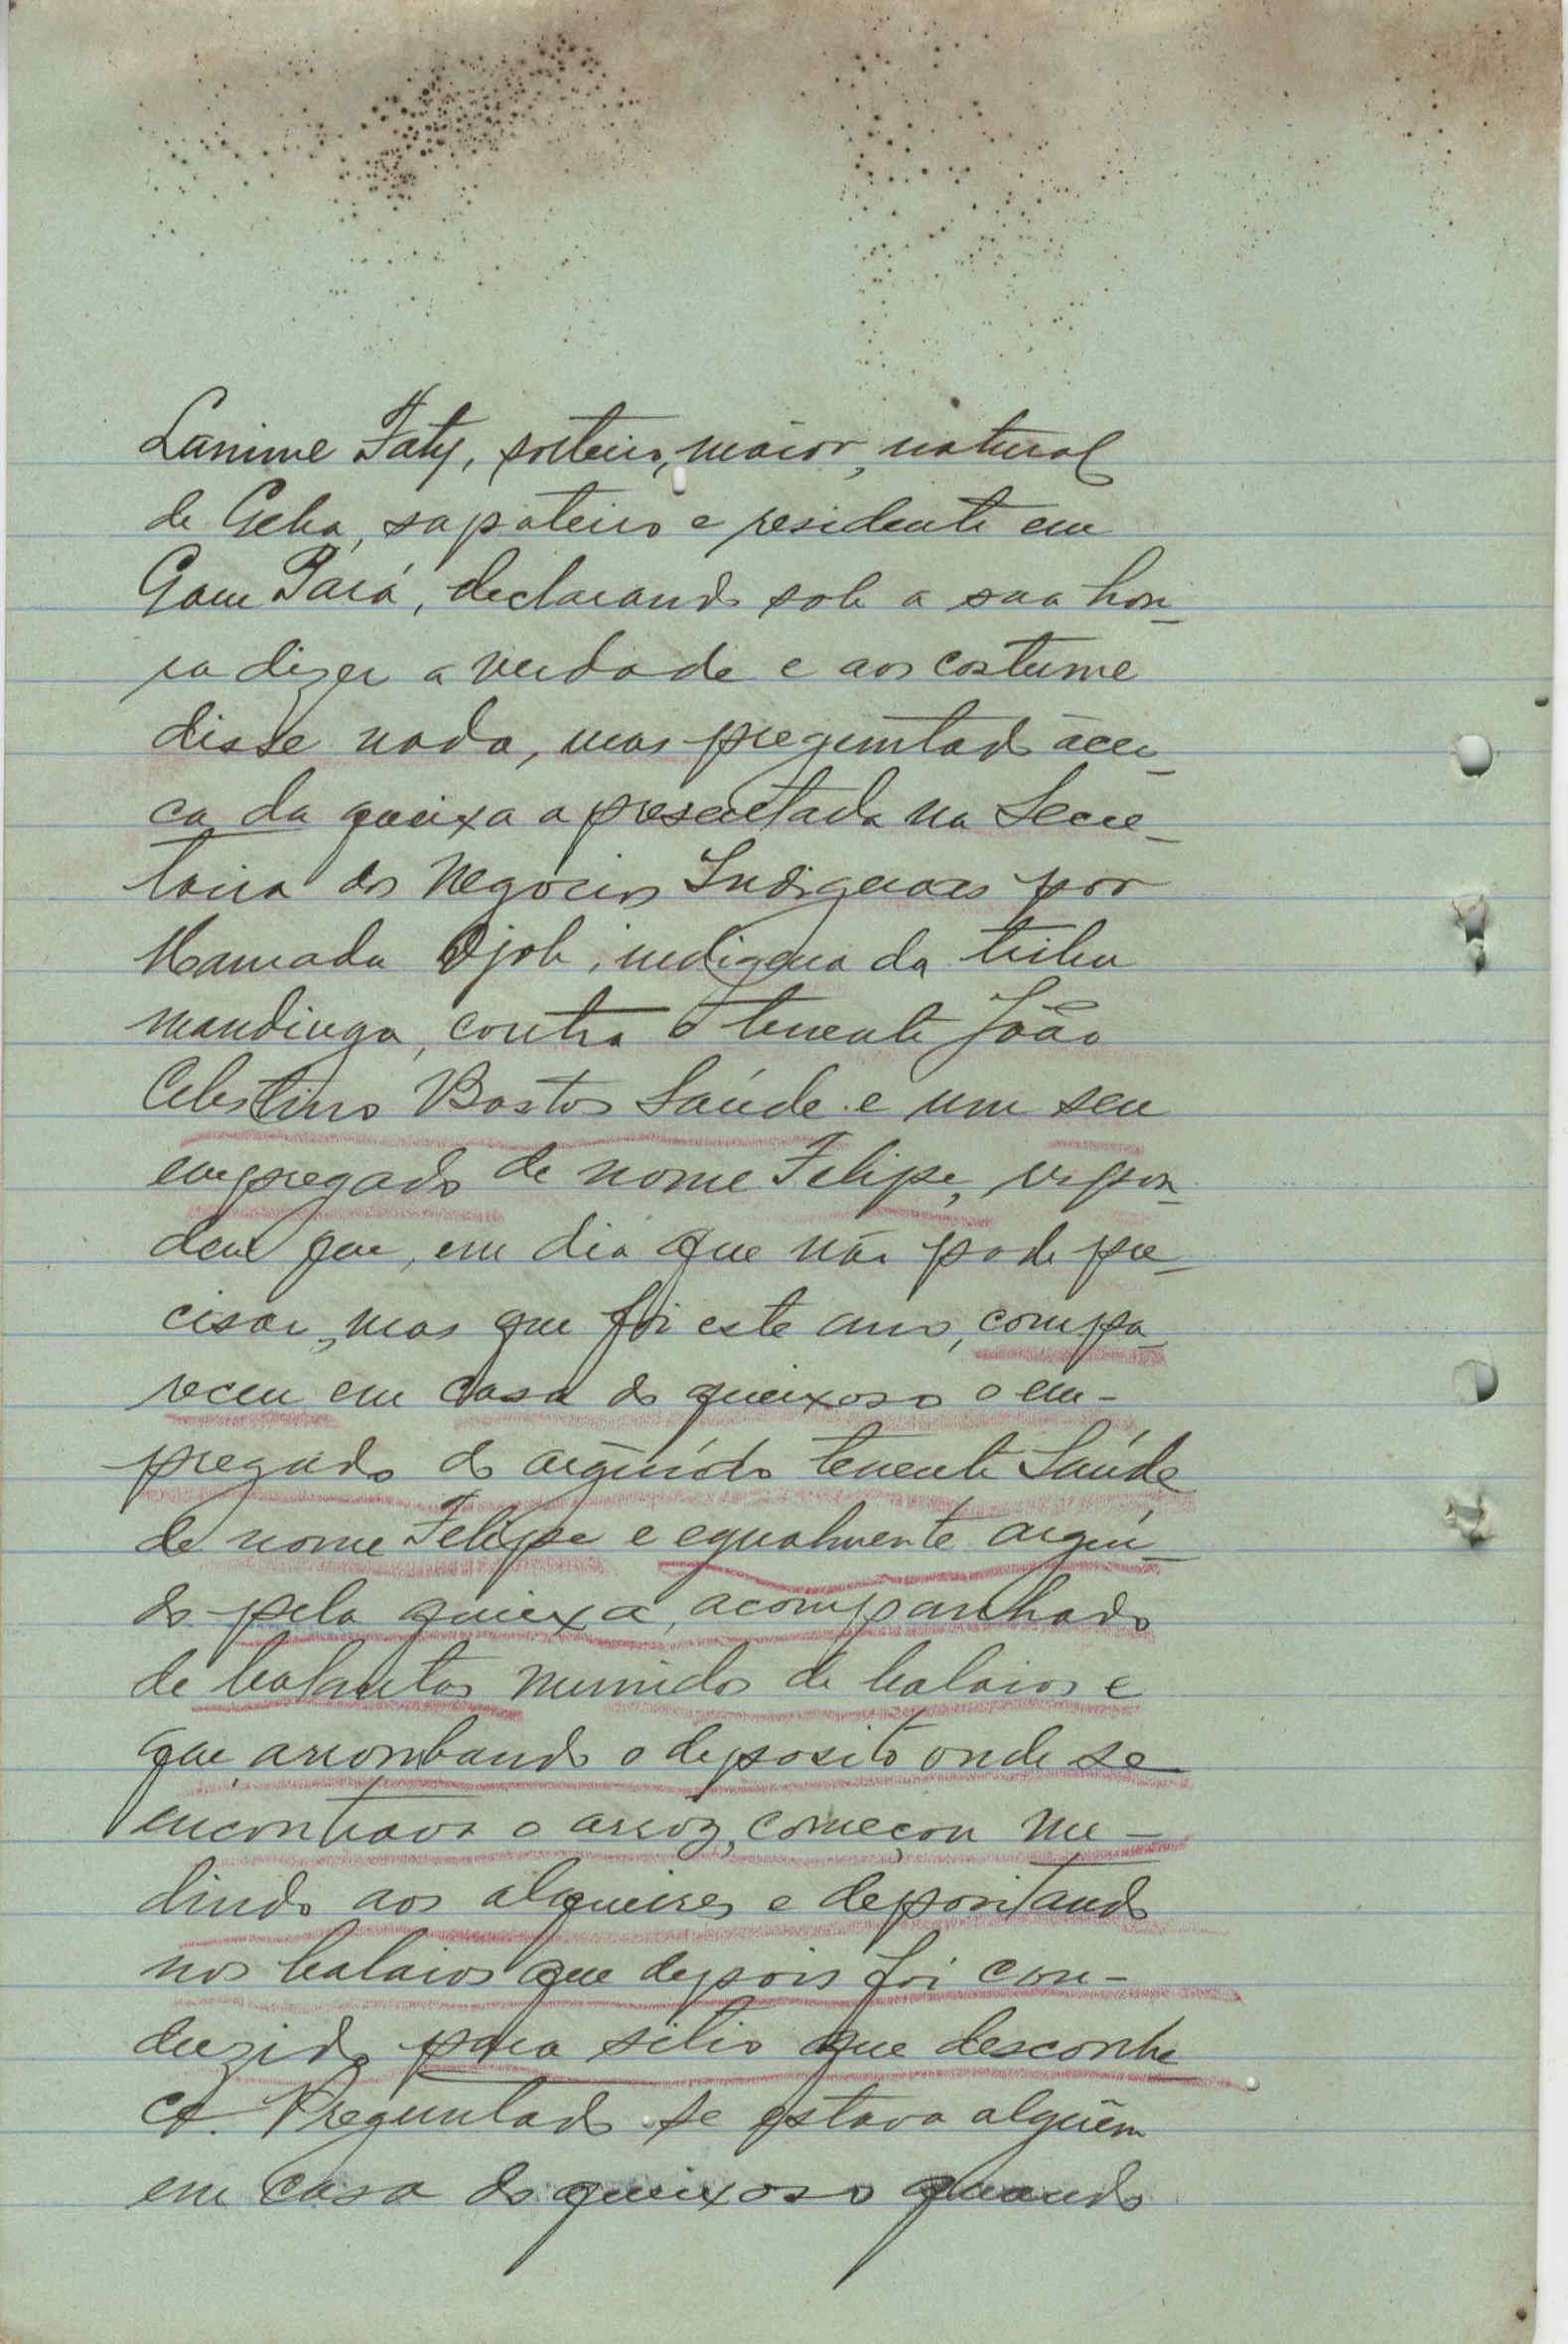 Lamine Faty, solteiro, maior, natural
de Geba, sapateiro e residente em
Gam Pará, declarando sob a sua hon-
ra dizer a verdade e aos costume
disse nada, mas preguntado àcer-
ca da queixa apresentada na Secre-
taria dos Negócios Indigenas por
Mamadu Djob, indigena da tribu
mandinga, contra o tenente João
Celestino Bastos Saúde e um seu
empregado de nome Felipe, respon-
deu que, em dia que não pode pre-
cisar, mas que foi este ano, compa-
receu em casa do queixoso o em-
pregado do arguido tenente Saúde
de nome Felipe e egualmente argui-
do pela queixa, acompanhado
de balantas munidos de balaios e
que, arrombando o deposito onde se
encontrava o arroz, começou me-
dindo aos alqueires e depositando
nos balaios que depois foi con-
duzido para sitio que desconhe
ce. Preguntado se estava alguêm
em casa do queixoso quando